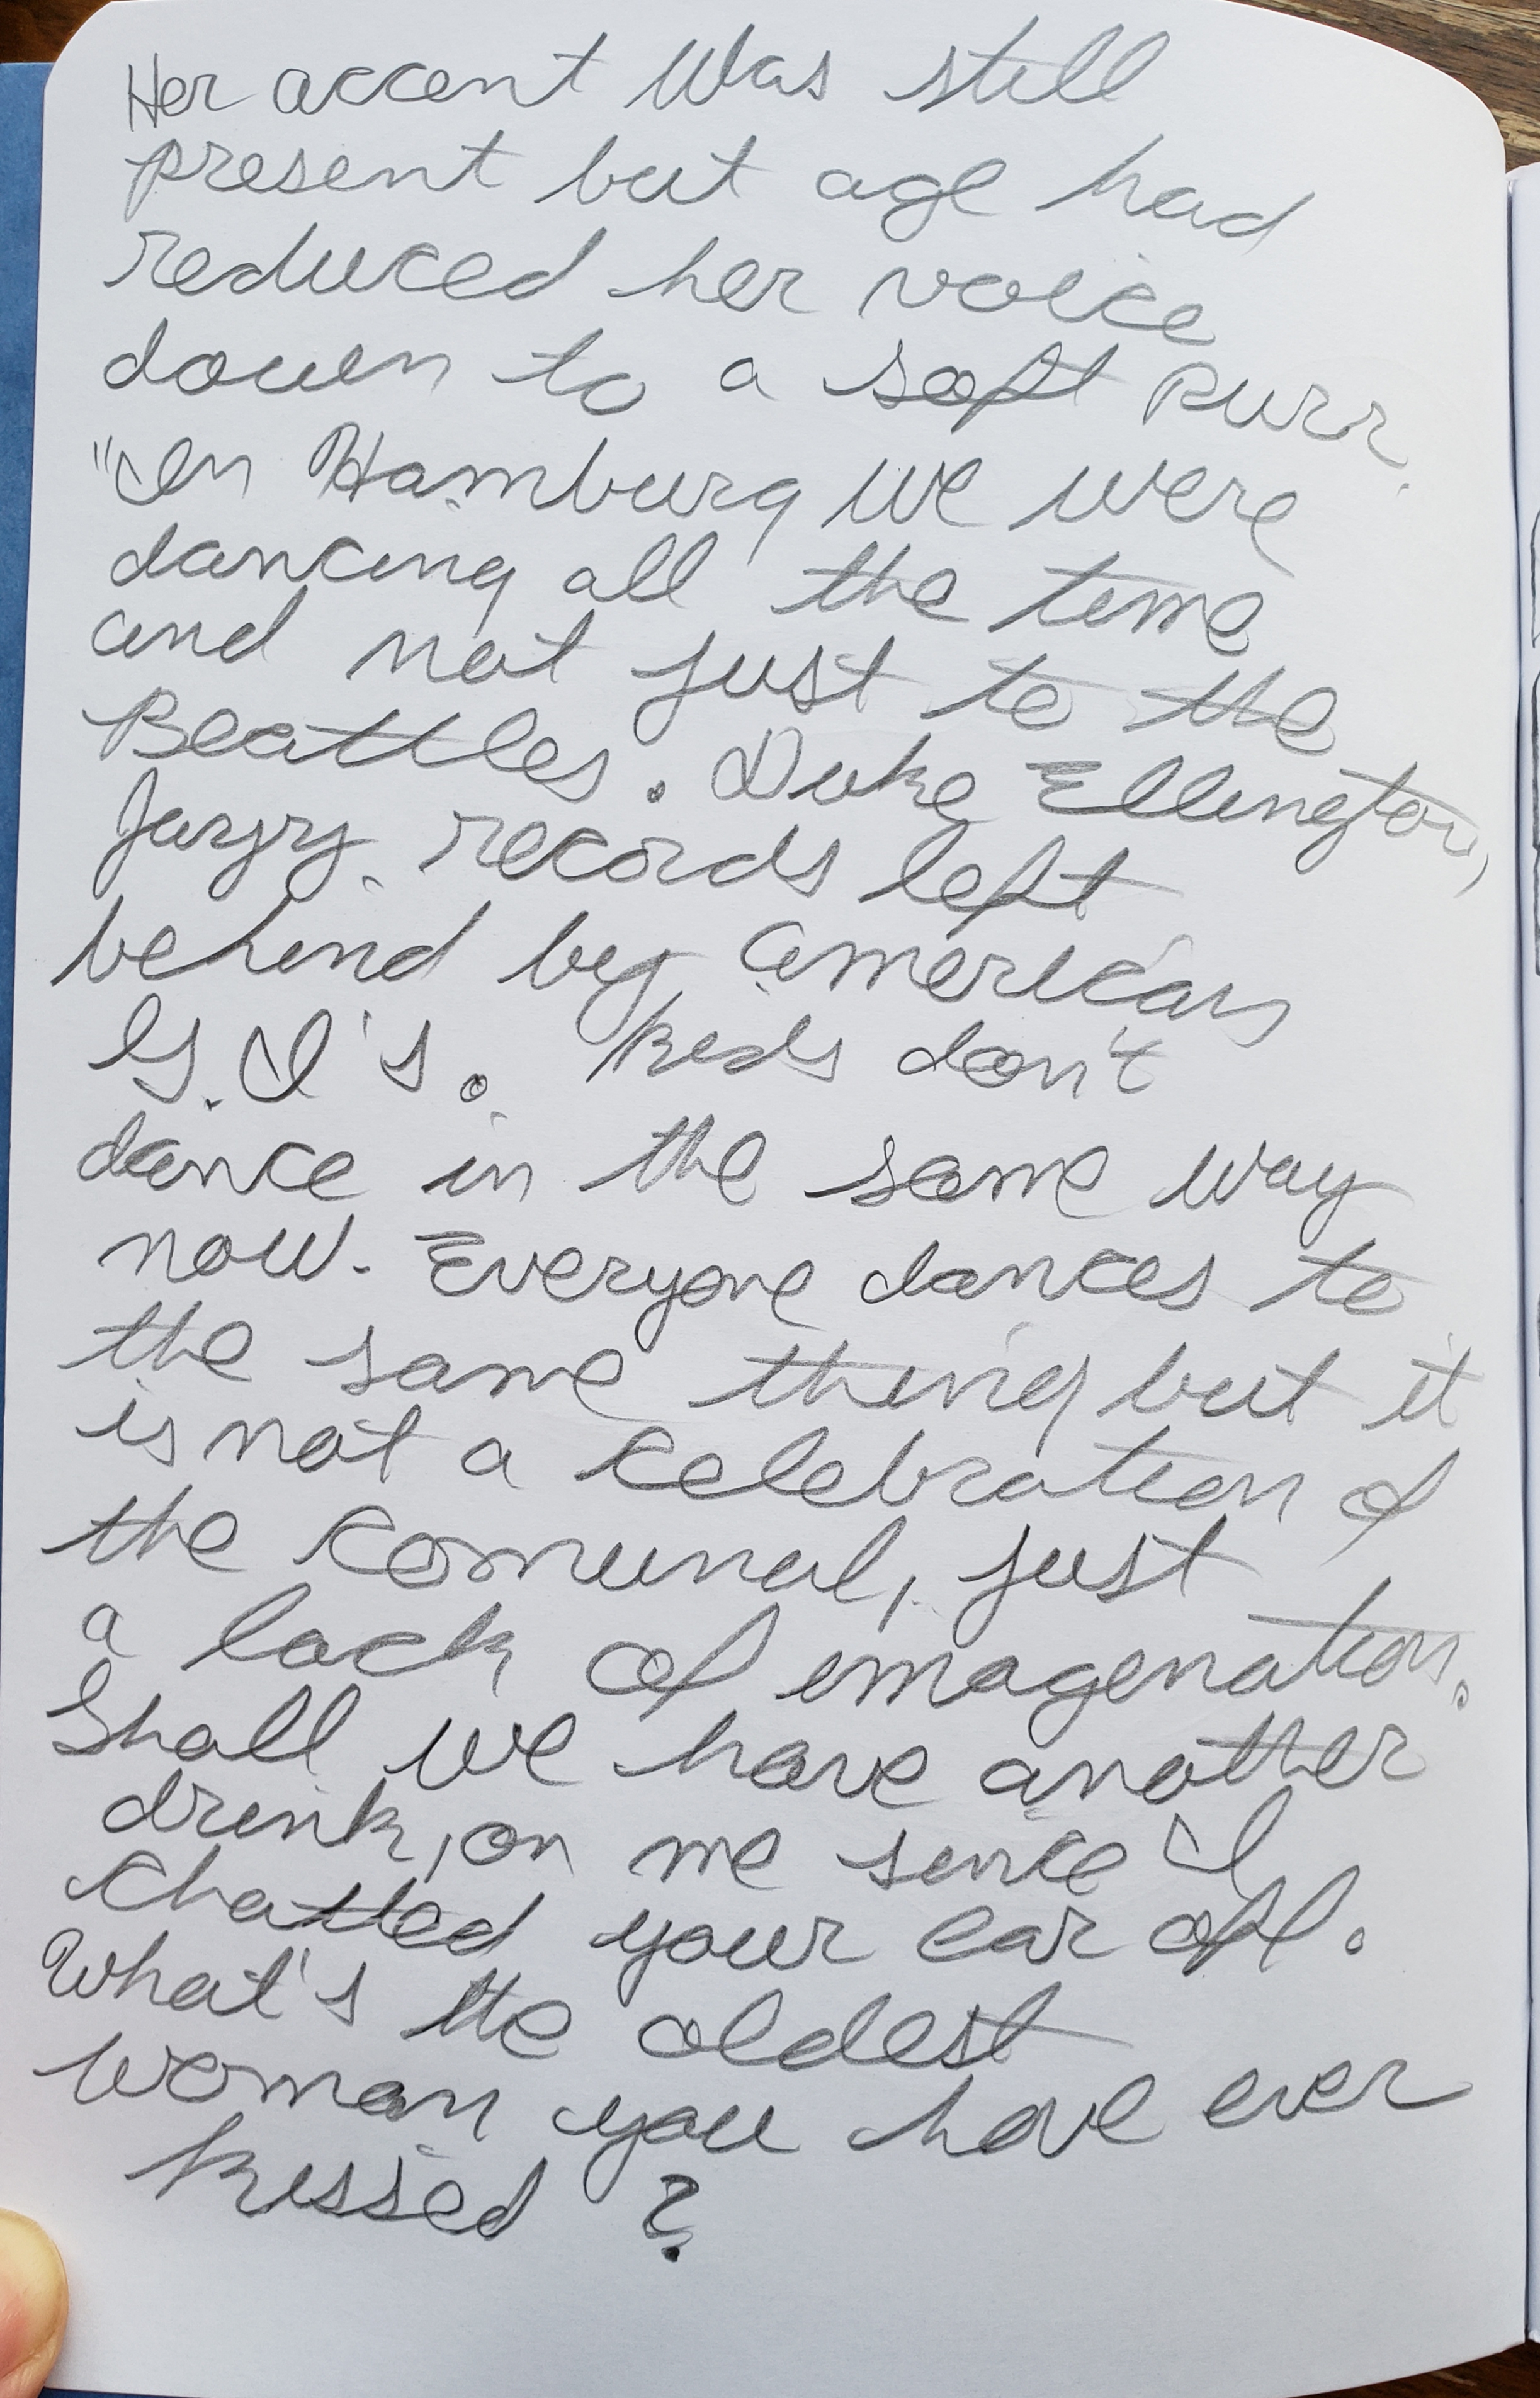 Her accent was still
present but age had
reduced her voice
down to a soft purr.
"In Hamburg we were
dancing all the time
and not just to the
Beattles. Duke Ellington,
Jazzy. records left
behind by american
G.I's. Kids don't
dance in the same way
now. Everyone dances to
the same thing but it
is not a celebration of
the comunal, just
a lack of imagenation.
Shall we have another
drink, on me since I
chatted your ear off.
What's the oldest
woman you have ever
kissed?